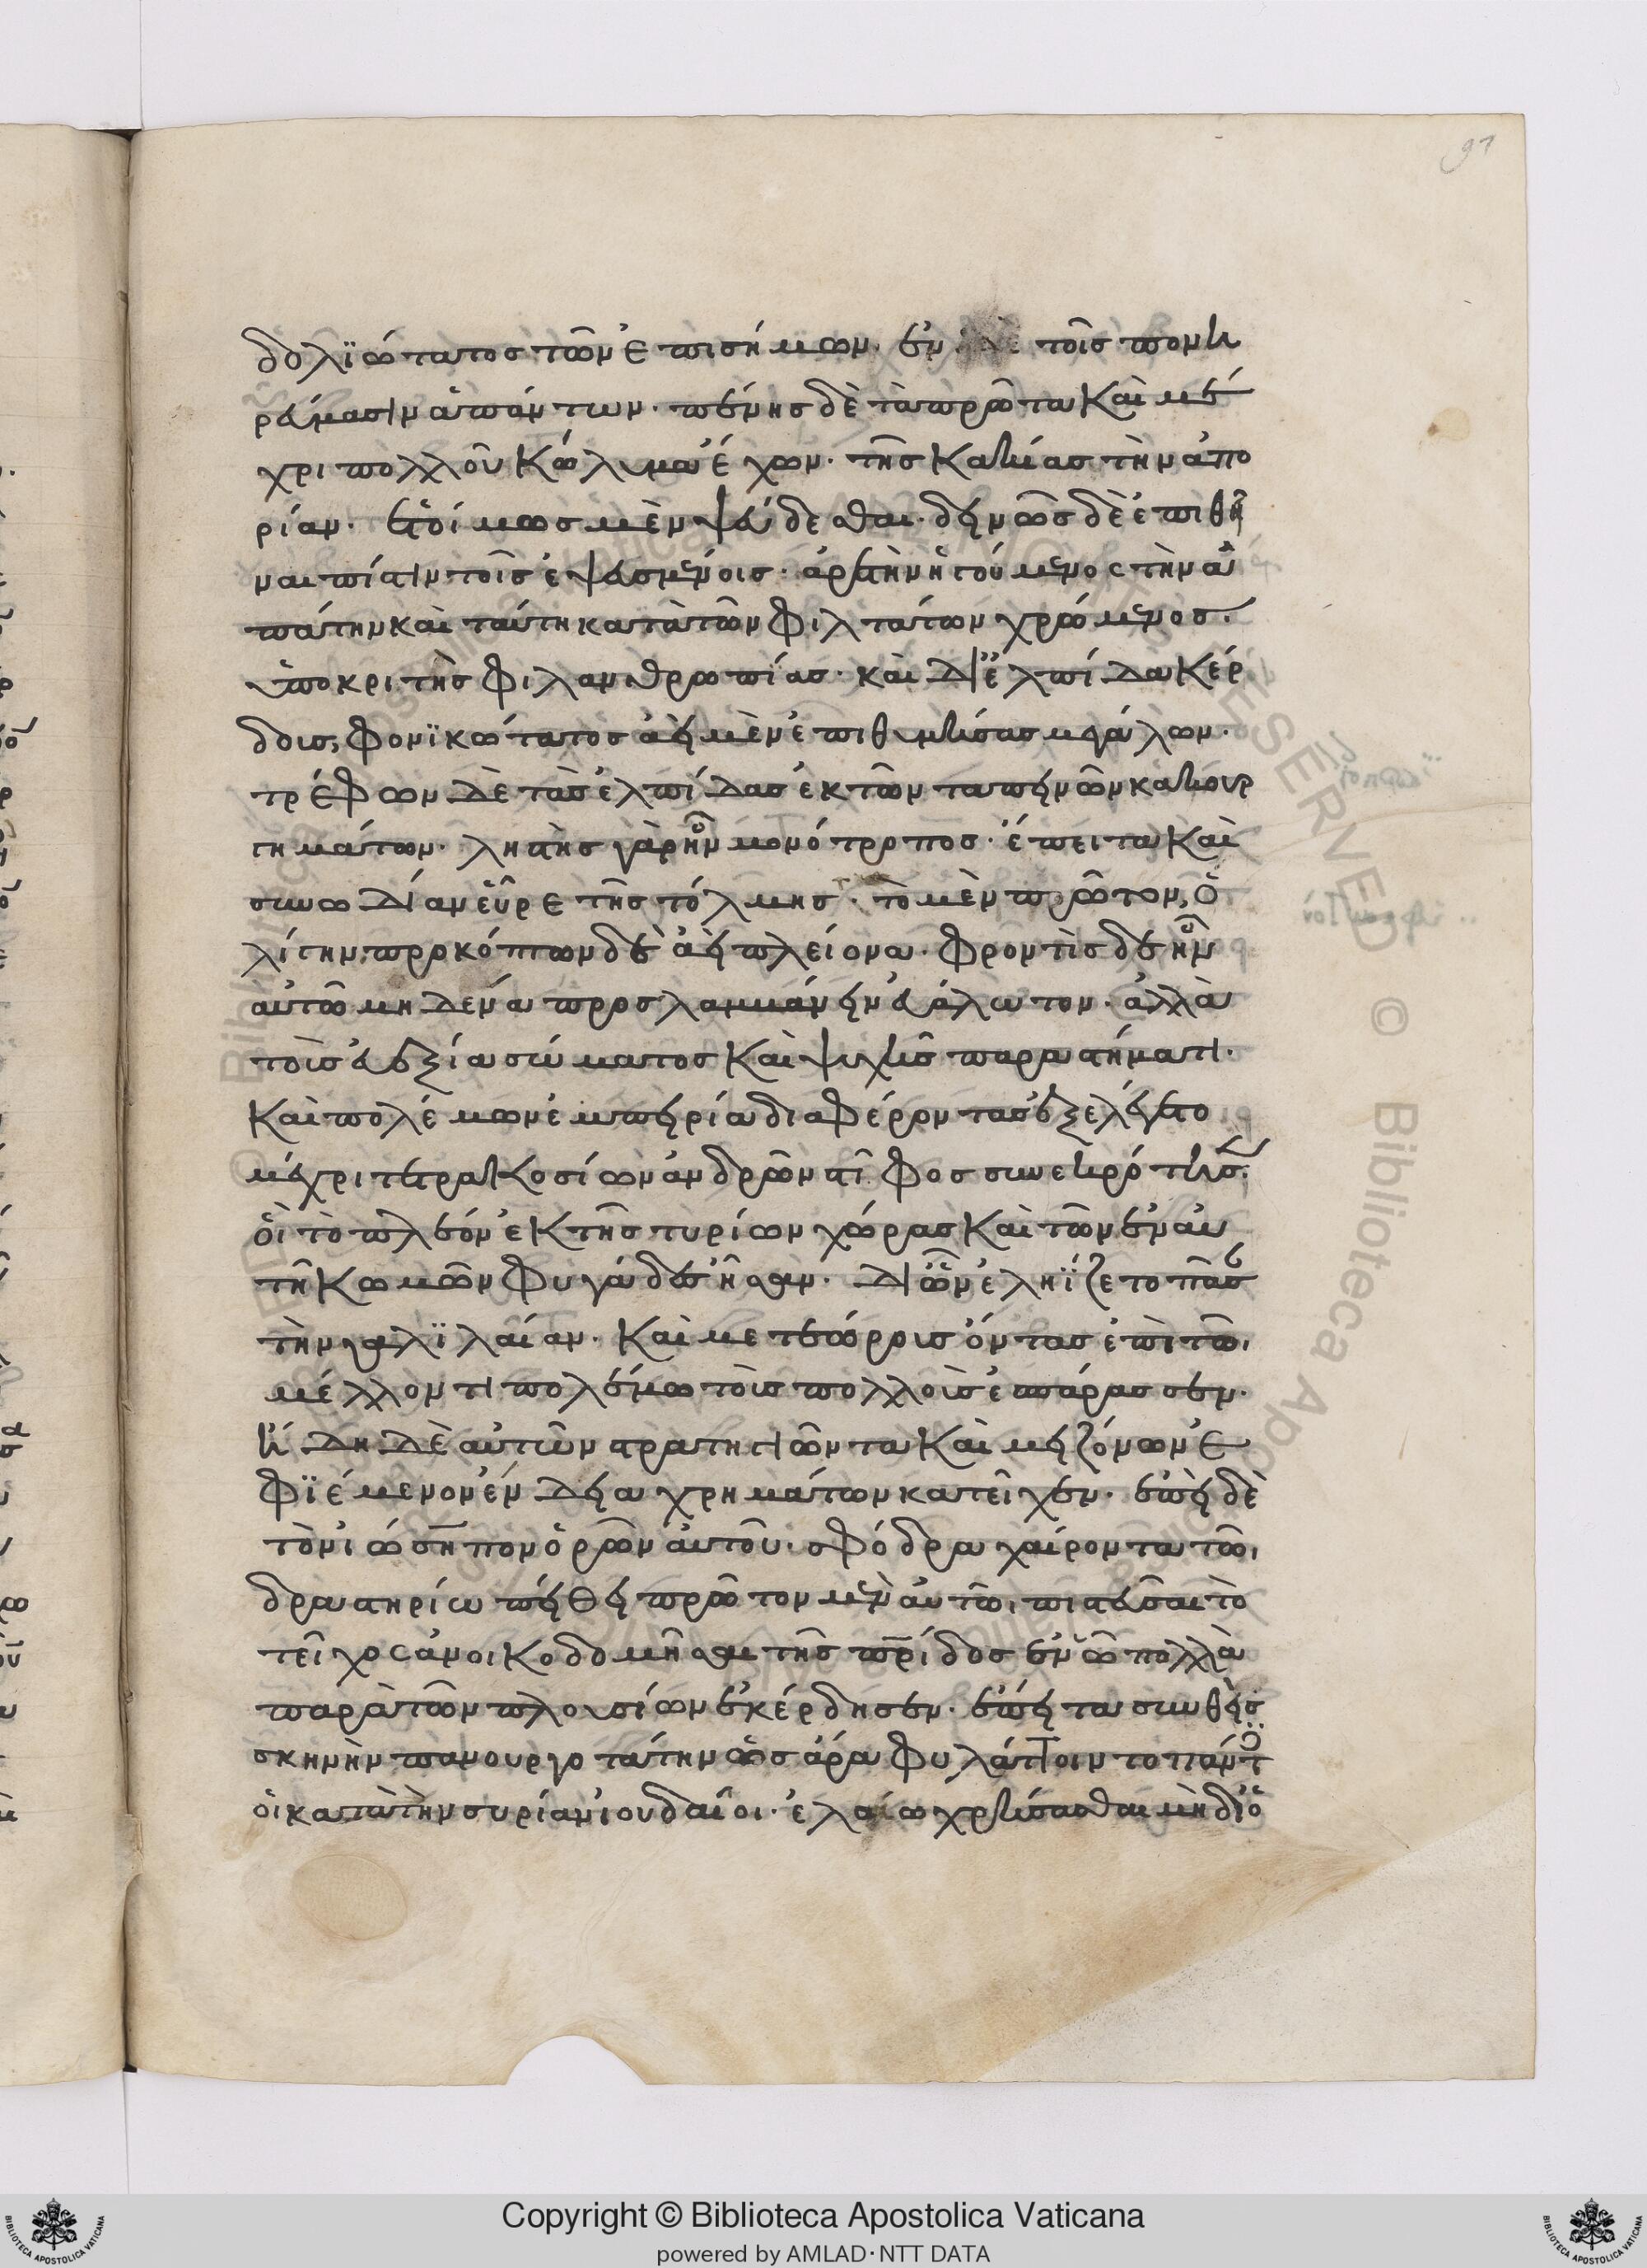 91
δολϊώτατος τῶν ἐπισήμων. ἐν τοῖς πονη
ρεύμασιν ἁπάντων. πένης δὲ τὰ πρῶτα καὶ μέ
χρι πολλοῦ κώλυμα ἔχων. τῆς κακίας τὴν ἀπο
ρίαν. ἕτοιμος μὲν ψεύδεσθαι. δεινῶς δὲ ἐπιθεῖ
ναι πίστιν τοῖς ἐψευσμένοις. ἀρετὴν ἡγούμενος τὴν ἀ
πάτην καὶ ταύτη κατὰ τῶν φιλτάτων χρώμενος.
ὑποκριτὴς φιλανθρωπίας. καὶ δι' ἐλπίδα κέρ
δους, φονϊκώτατος ἀεὶ μὲν ἐπιθυμήσας μεγάλων.
τρέφων δὲ τὰς ἐλπίδας ἐκ τῶν ταπεινῶν κακουρ
γημάτων. ληστὴς γὰρ ἦν μονότροπος. ἔπειτα καὶ
συνωδίαν εὗρε τῆς τόλμης. τὸ μὲν πρῶτον, ὀ
λίγην, προκόπτων δὲ ἀεὶ πλείονα. φροντὶς δὲ ἦν
αὐτῶ μηδένα προσλαμβάνειν εὐάλωτον. ἀλλὰ
τοὺς εὐεξία σώματος καὶ ψυχῆς παραστήματι.
καὶ πολέμων ἐμπειρία διαφέροντας ἐξελέγετο
μέχρι τετρακοσίων ἀνδρῶν στῖφος συνεκρότησ
οἳ τὸ πλέον ἐκ τῆς τυρίων χώρας καὶ τῶν ἐν αὐ
τῆ κωμῶν φυγάδες ἦσαν. δι' ὧν ἐληΐζετο πᾶσ
τὴν γαλϊλαίαν. καὶ μετεώρους ὄντας ἐπὶ τῶ
μέλλοντι πολέμω τοὺς πολλοὺς ἐσπάρασσεν.
ἤδη δὲ αὐτὸν στρατηγιῶντα καὶ μειζόνων ἐ
φϊέμενον ἔνδεια χρημάτων κατεῖχεν. ἐπεὶ δὲ
τὸν ἰώσηπον ὁρῶν αὐτοῦ. σφόδρα χαίροντα τῶ
δραστηρίω πείθει πρῶτον μὲν αὐτῶ πιστεῦσαι τὸ
τεῖχος ἀνοικοδομῆσαι τῆς πρίδος ἐν ὧ πολλὰ
παρὰ τῶν πλουσίων ἐκέρδησεν. ἔπειτα συνθεὶς
σκηνὴν πανουργοτάτην ὡς ἄρα φυλάττοιντο πάντ
οἱ κατὰ τὴν συρίαν ἰουδαῖοι. ἐλαίω χρήσασθαι μὴ δι' ὁ
Copyright © Biblioteca Apostolica Vaticana
powered by AMLAD·NTT DATA